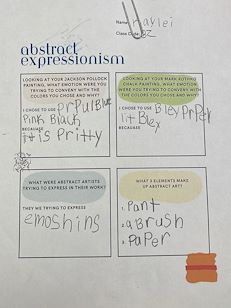 Name: haylei
Class Code: BZ
abstract
expressionism
LOOKING AT YOUR JACKSON POLLOCK
PAINTING, WHAT EMOTION WERE YOU
TRYING TO CONVEY WITH
THE COLORS YOU CHOSE AND WHY?
I CHOSE TO USE prPulBlue
Pink Black
BECAUSE
it is Pritty
LOOKING AT YOUR MARK ROTHKO
CHALK PAINTING, WHAT EMOTION
WERE YOU TRYING TO CONVEY WITH
THE COLORS YOU CHOSE AND WHY?
I CHOSE TO USE Bley PrPel
BECAUSE
WHAT WERE ABSTRACT ARTISTS
TRYING TO EXPRESS IN THEIR WORK?
THEY WE TRYING TO EXPRESS
emoshins
WHAT 3 ELEMENTS MAKE
UP ABSTRACT ART?
1. Pant
2. a Brush
3. PaPer